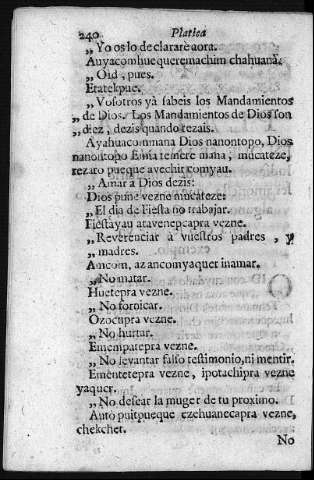 240 Platica
„ Yo os lo declararè aora.
Auyacomhuequeremachim chahuana.
„ Oid, pues.
Etatekpue.
„ Vosotros yà sabeis los Mandamientos
„ de Dios. Los Mandamientos de Dios son
„ diez, dezis quando rezais.
Ayahuacommana Dios nanontopo, Dios
nanontopo Emia temere mana, mucateze,
rezaro pueque avechir comyau.
„ Amar à Dios dezis:
Dios pune vezne mucateze:
„ El dia de Fiesta no trabajar.
Fiestayau atavenepcapra vezne.
„ Reverenciar à vuestros padres, y
„ madres.
Amcom, az ancomyaquer inamar.
„ No matar.
Huetepra vezne.
„ No fornicar.
Ozocupra vezne.
„ No hurtar.
Emempatepra vezne.
„ No levantar falso testimonio, ni mentir.
Ementetepra vezne, ipotachipra vezne
yaquer.
„ No desear la muger de tu proximo.
Auto puitpueque ezehuanecapra vezne,
chekchet.
No